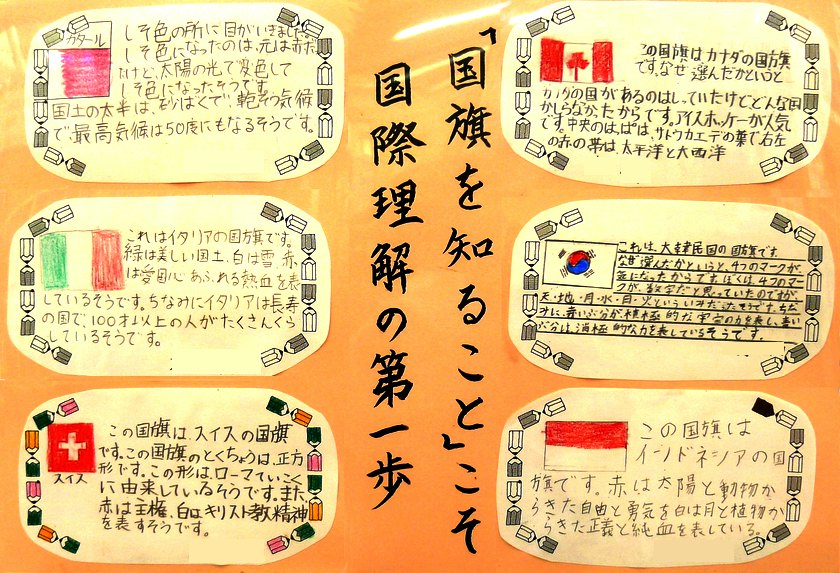 「国旗を知ること」こそ
国際理解の第一歩
カタール
しそ色の所に目がいきました。
しそ色になったのは、元は赤だ
たけど、太陽の光で変色して
しそ色になったそうです。
国土の大半は、砂ばくで、乾そう気候
で最高気候は50度にもなるそうです。
これはイタリアの国旗です。
緑は美しい国土、白は雪、赤
は愛国心あふれる熱血を表
しているそうです。ちなみにイタリアは長寿
の国で、100才以上の人がたくさんくら
しているそうです。
スイス
この国旗は、スイスの国旗
です。この国旗のとくちょうは、正方
形です。この形は、ローマていこく
に由来しているそうです。また、
赤は主権、白はキリスト教精神
を表すそうです。
この国旗はカナダの国旗
です。なぜ選んだかというと、
カナダの国があるのはしっていたけどどんな国
かしらなかったからです。アイスホッケーが人気
です。中央のはっぱは、サトウカエデの葉で右左
の赤の帯は、太平洋と大西洋
これは、大韓民国の国旗です。
なぜ選んだかというと、4つのマークが
気になったからです。ぼくは、4つのマー
クが、数字だと思っていたのですが、
天・地・月・水・日・火といういみだったそうです。ちな
みに、赤い部分が積極的な宇宙の力を表し、青い
ぶ分は、消極的な力を表しているそうです。
この国旗は
インドネシアの国
旗です。赤は太陽と動物か
らきた自由と勇気を白は月と植物か
らきた正義と純血を表している。